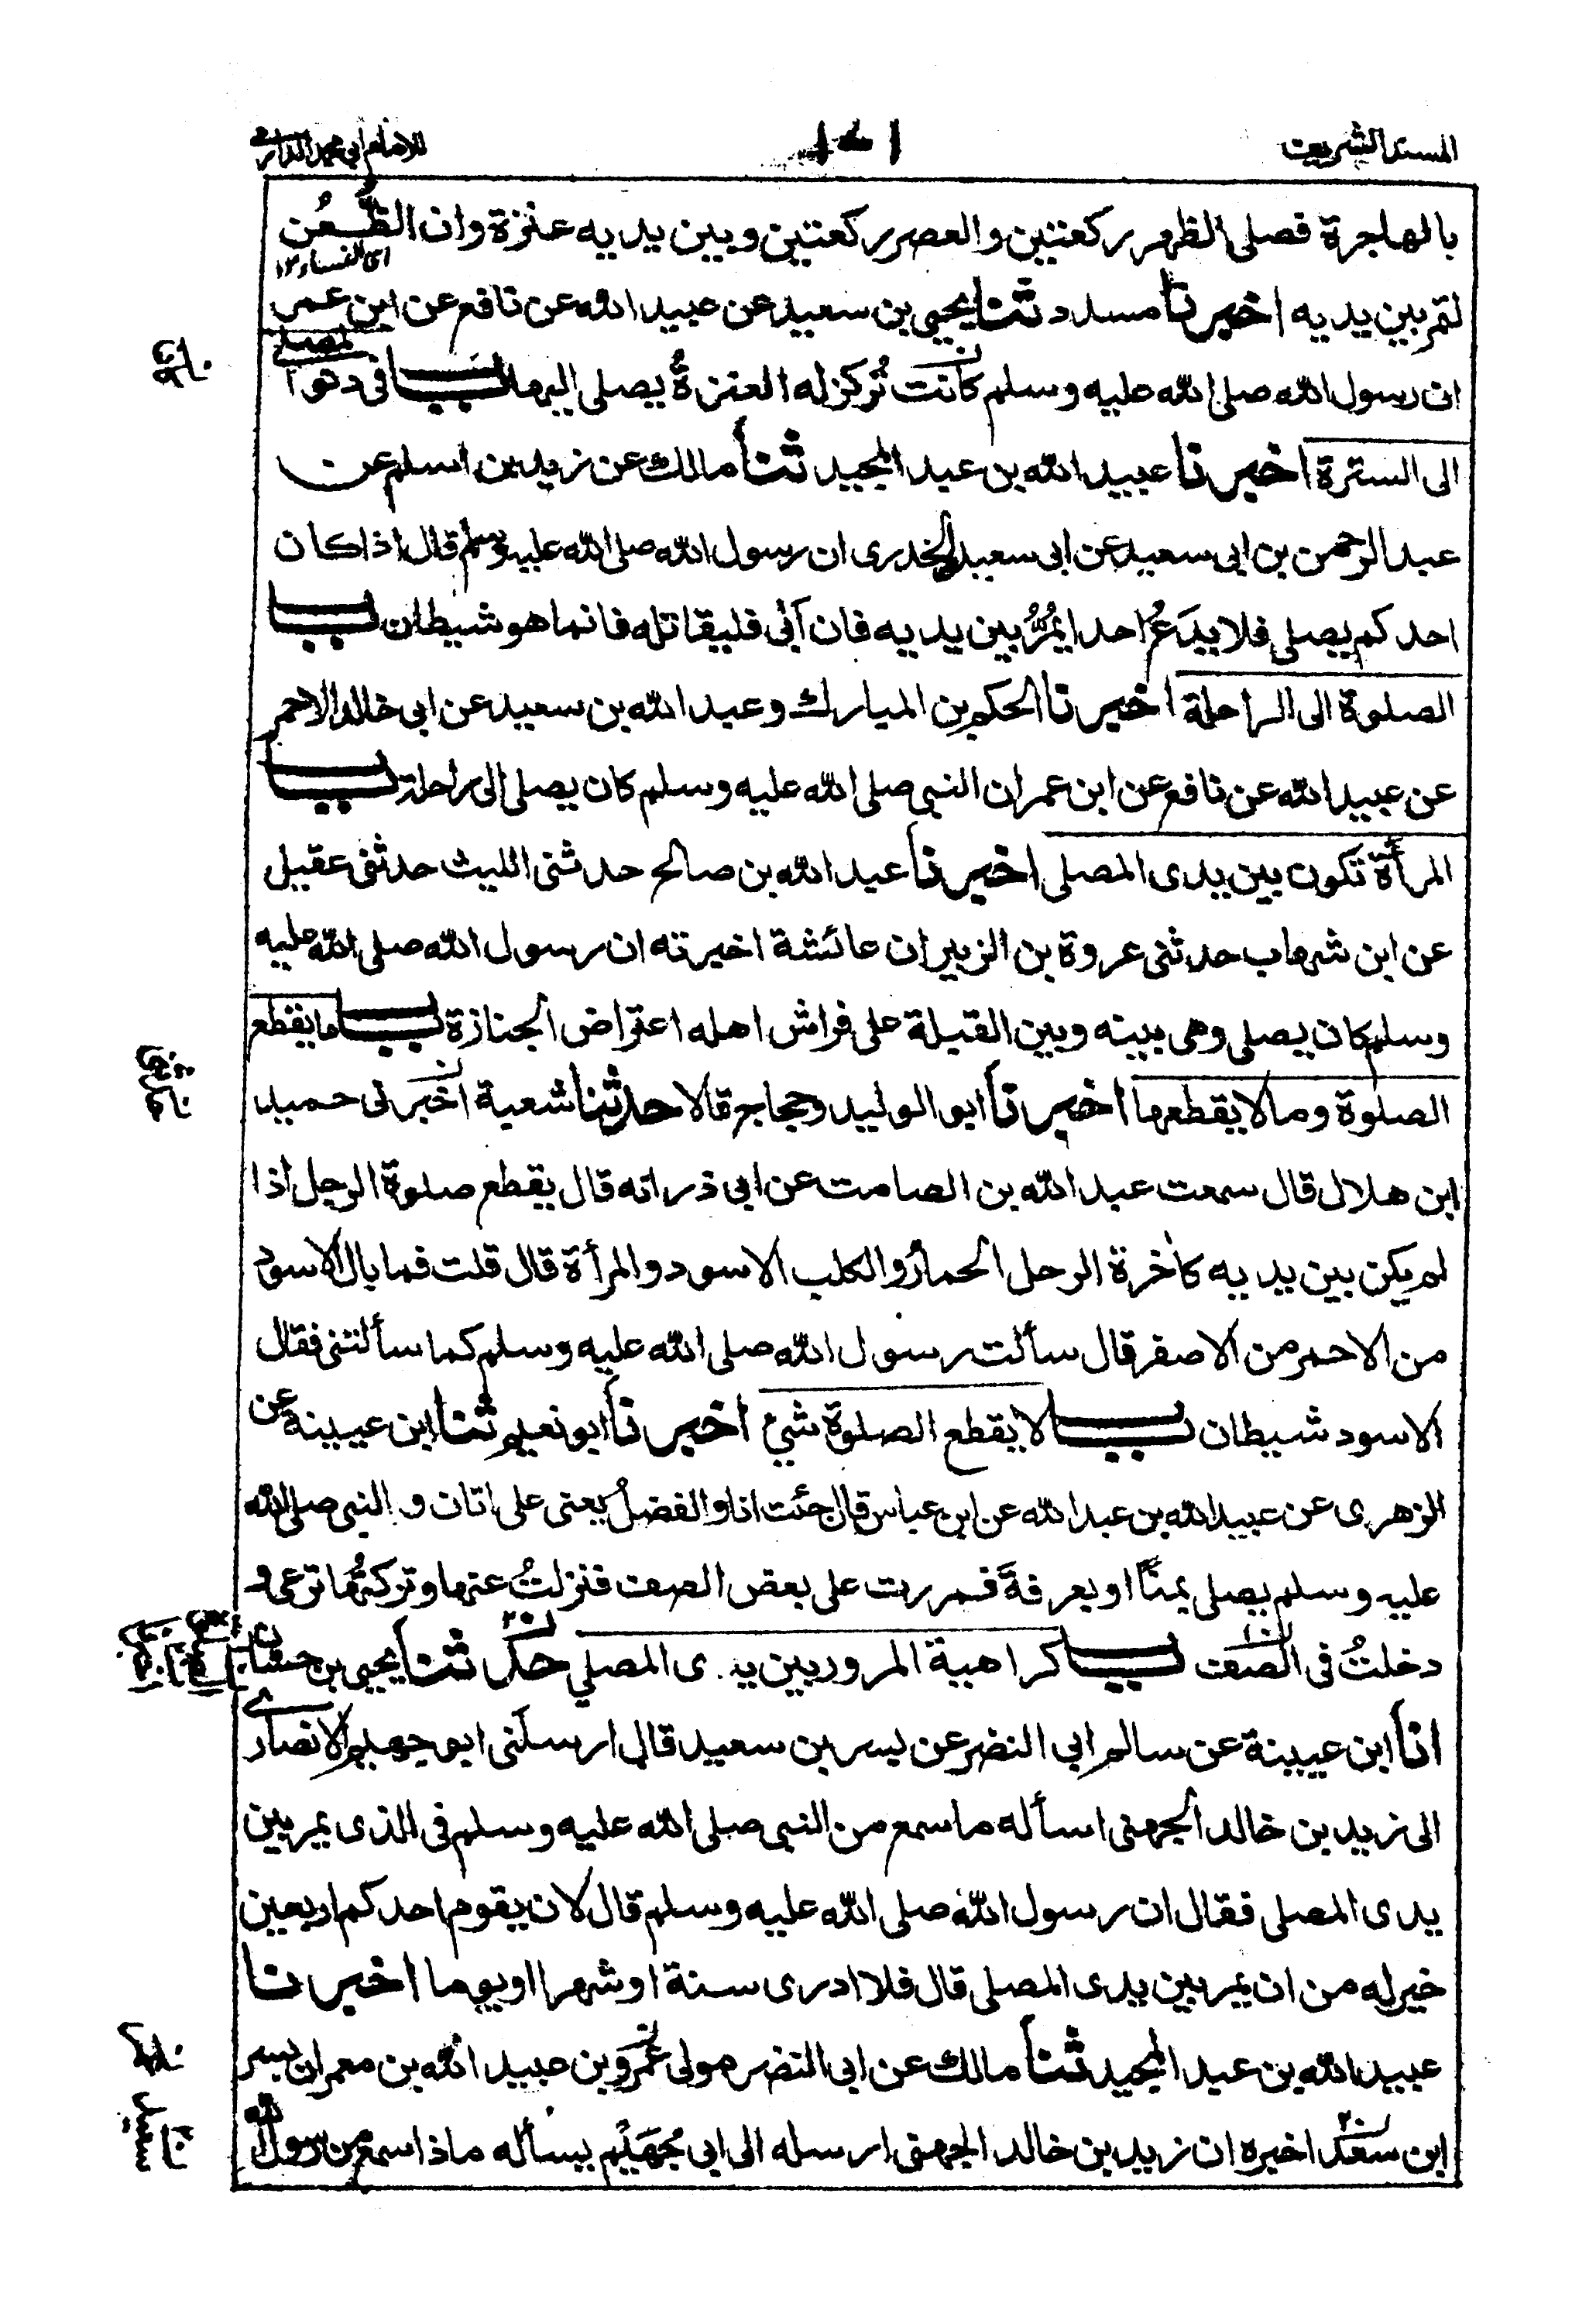 المسند الشريف
١٧١
للامام ابي محمد الدارمي
بالهاجرة فصلى الظهر ركعتين والعصر ركعتين وبين يديه عنزة وان الظُّعُن
اى النساء ١٢
لتمر بين يديه اخبرنا مسدد ثنا يحيى بن سعيد عن عبيد الله عن نافع عن ابن عمر
ان رسول الله صلى الله عليه وسلم كانت تُركز له العنزةُ يصلى اليها باب فى دنو المصلى
الى السترة اخبرنا عبيد الله بن عبد المجيد ثنا مالك عن زيد بن اسلم عن
عبد الرحمن بن ابى سعيد عن ابى سعيد الخدرى ان رسول الله صلى الله عليه وسلم قال اذا كان
احدكم يصلى فلا يدَعُ احدا يمُرُّ بين يديه فان أبى فليقاتله فانما هو شيطان باب
الصلوة الى الراحلة اخبرنا الحكم بن المبارك وعبد الله بن سعيد عن ابى خالد الاحمر
عن عبيد الله عن نافع عن ابن عمر ان النبى صلى الله عليه وسلم كان يصلى الى راحلته باب
المرأة تكون بين يدى المصلى اخبرنا عبد الله بن صالح حدثنى الليث حدثنى عقيل
عن ابن شهاب حدثنى عروة بن الزبير ان عائشة اخبرته ان رسول الله صلى الله عليه
وسلم كان يصلى وهى بينه وبين القبلة على فراش اهله اعتراض الجنازة باب ما يقطع
الصلوة وما لا يقطعها اخبرنا ابو الوليد وحجاج قالا حدثنا شعبة اخبرنى حميد
ابن هلال قال سمعت عبد الله بن الصامت عن ابى ذر انه قال يقطع صلوة الرجل اذا
لم يكن بين يديه كأخرة الرحل الحمار والكلب الاسود والمرأة قال قلت فما بال الاسود
من الاحمر من الاصفر قال سألت رسول الله صلى الله عليه وسلم كما سألتنى فقال
الاسود شيطان باب لا يقطع الصلوة شئ اخبرنا ابو نعيم ثنا ابن عيينة عن
الزهرى عن عبيد الله بن عبد الله عن ابن عباس قال جئت انا والفضلُ يعنى على اتان والنبى صلى الله
عليه وسلم يصلى بمنًا او بعرفةَ فمررت على بعض الصف فنزلتُ عنها وتركتُها ترعى و
دخلتُ فى الصف باب كراهية المرور بين يدى المصلي حدثنا يحيى بن حسان
انا ابن عيينة عن سالم ابى النضر عن بسر بن سعيد قال ارسلنى ابو جهيم الانصارى
الى زيد بن خالد الجهنى اسأله ما سمع من النبى صلى الله عليه وسلم فى الذى يمر بين
يدى المصلى فقال ان رسول الله صلى الله عليه وسلم قال لان يقوم احدكم اربعين
خير له من ان يمر بين يدى المصلى قال فلا ادرى سنة او شهرا او يوما اخبرنا
عبيد الله بن عبد المجيد ثنا مالك عن ابى النضر مولى عمرو بن عبيد الله بن معمر ان بسر
ابن سعد اخبره ان زيد بن خالد الجهنى ارسله الى ابى جُهَيْم يسأله ماذا سمع من رسول الله